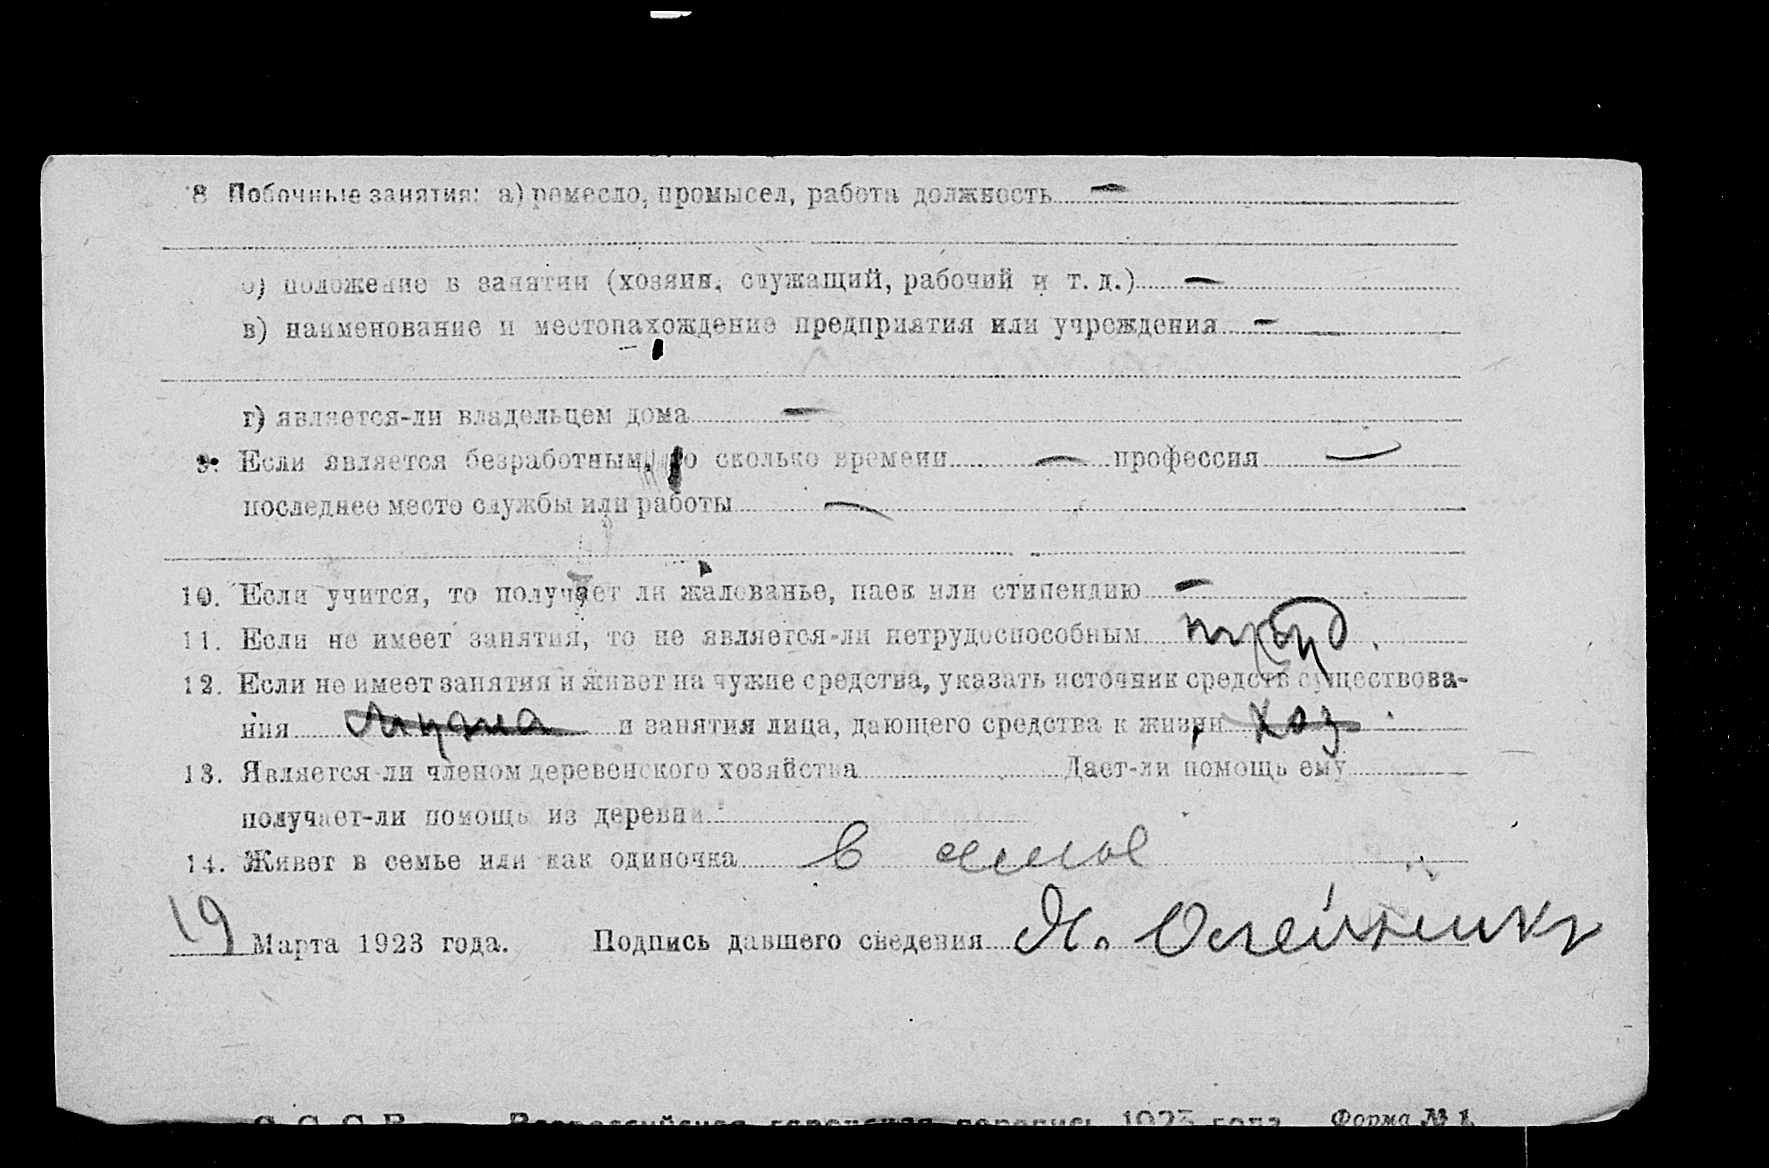 8 Побочные занятия: а) ремесло, промысел, работа должность —
б) положение в занятии (хозяин, служащий, рабочий и т. д.) —
в) наименование и местонахождение предприятия или учреждения —
г) является-ли владельцем дома —
9. Если является безработным, то сколько времени — профессия —
последнее место службы или работы —
10. Если учится, то получает ли жалованье, паек или стипендию —
11. Если не имеет занятия, то не является-ли нетрудоспособным
12. Если не имеет занятия и живет на чужие средства, указать источник средств существова-
ния и занятия лица, дающего средства к жизни хоз
13. Является-ли членом деревенского хозяйства Дает-ли помощь ему
получает-ли помощь из деревни
14. Живет в семье или как одиночка в семье
19 Марта 1923 года. Подпись давшего сведения
С. С. С. Р. Всероссийская городская перепись 1923 года Форма № 1.